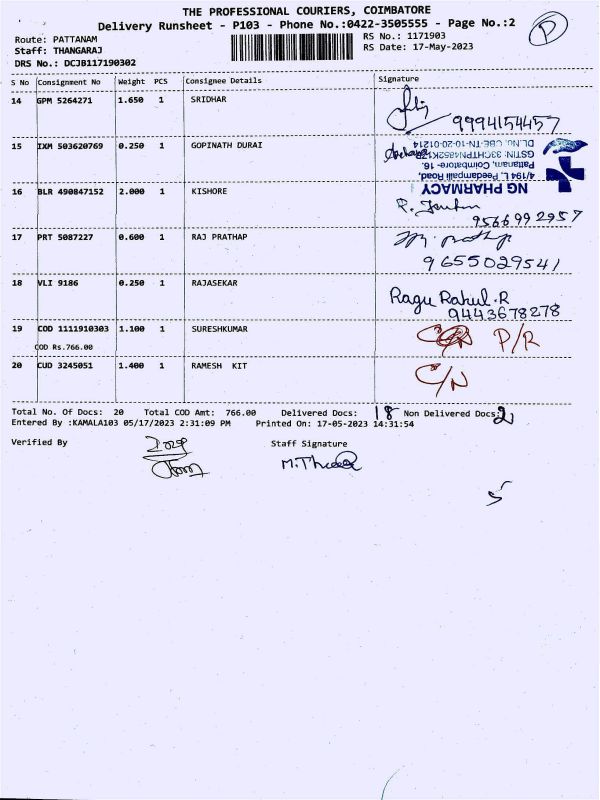 THE PROFESSIONAL COURIERS, COIMBATORE
Delivery Runsheet - P103 - Phone No.:0422-3505555 - Page No.:2
P
Route: PATTANAM
RS No.: 1171903
Staff: THANGARAJ
RS Date: 17-May-2023
DRS No.: DCJB117190302
S No Consignment No Weight PCS Consignee Details Signature
14 GPM 5264271 1.650 1 SRIDHAR
9994154457
15 IXM 503620769 0.250 1 GOPINATH DURAI
NG PHARMACY
4/194 L Peedampalli Road,
Pattanam, Coimbatore- 16.
DL.No. CBE-TN-10-20-01214
16 BLR 490847152 2.000 1 KISHORE
9566992957
17 PRT 5087227 0.600 1 RAJ PRATHAP
9655029541
18 VLI 9186 0.250 1 RAJASEKAR
Ragu Rahul.R
9443678278
19 COD 1111910303 1.100 1 SURESHKUMAR P/R
COD Rs.766.00
20 CUD 3245051 1.400 1 RAMESH KIT C/N
Total No. Of Docs: 20 Total COD Amt: 766.00 Delivered Docs: 18 Non Delivered Docs: 2
Entered By :KAMALA103 05/17/2023 2:31:09 PM Printed On: 17-05-2023 14:31:54
Verified By
Staff Signature